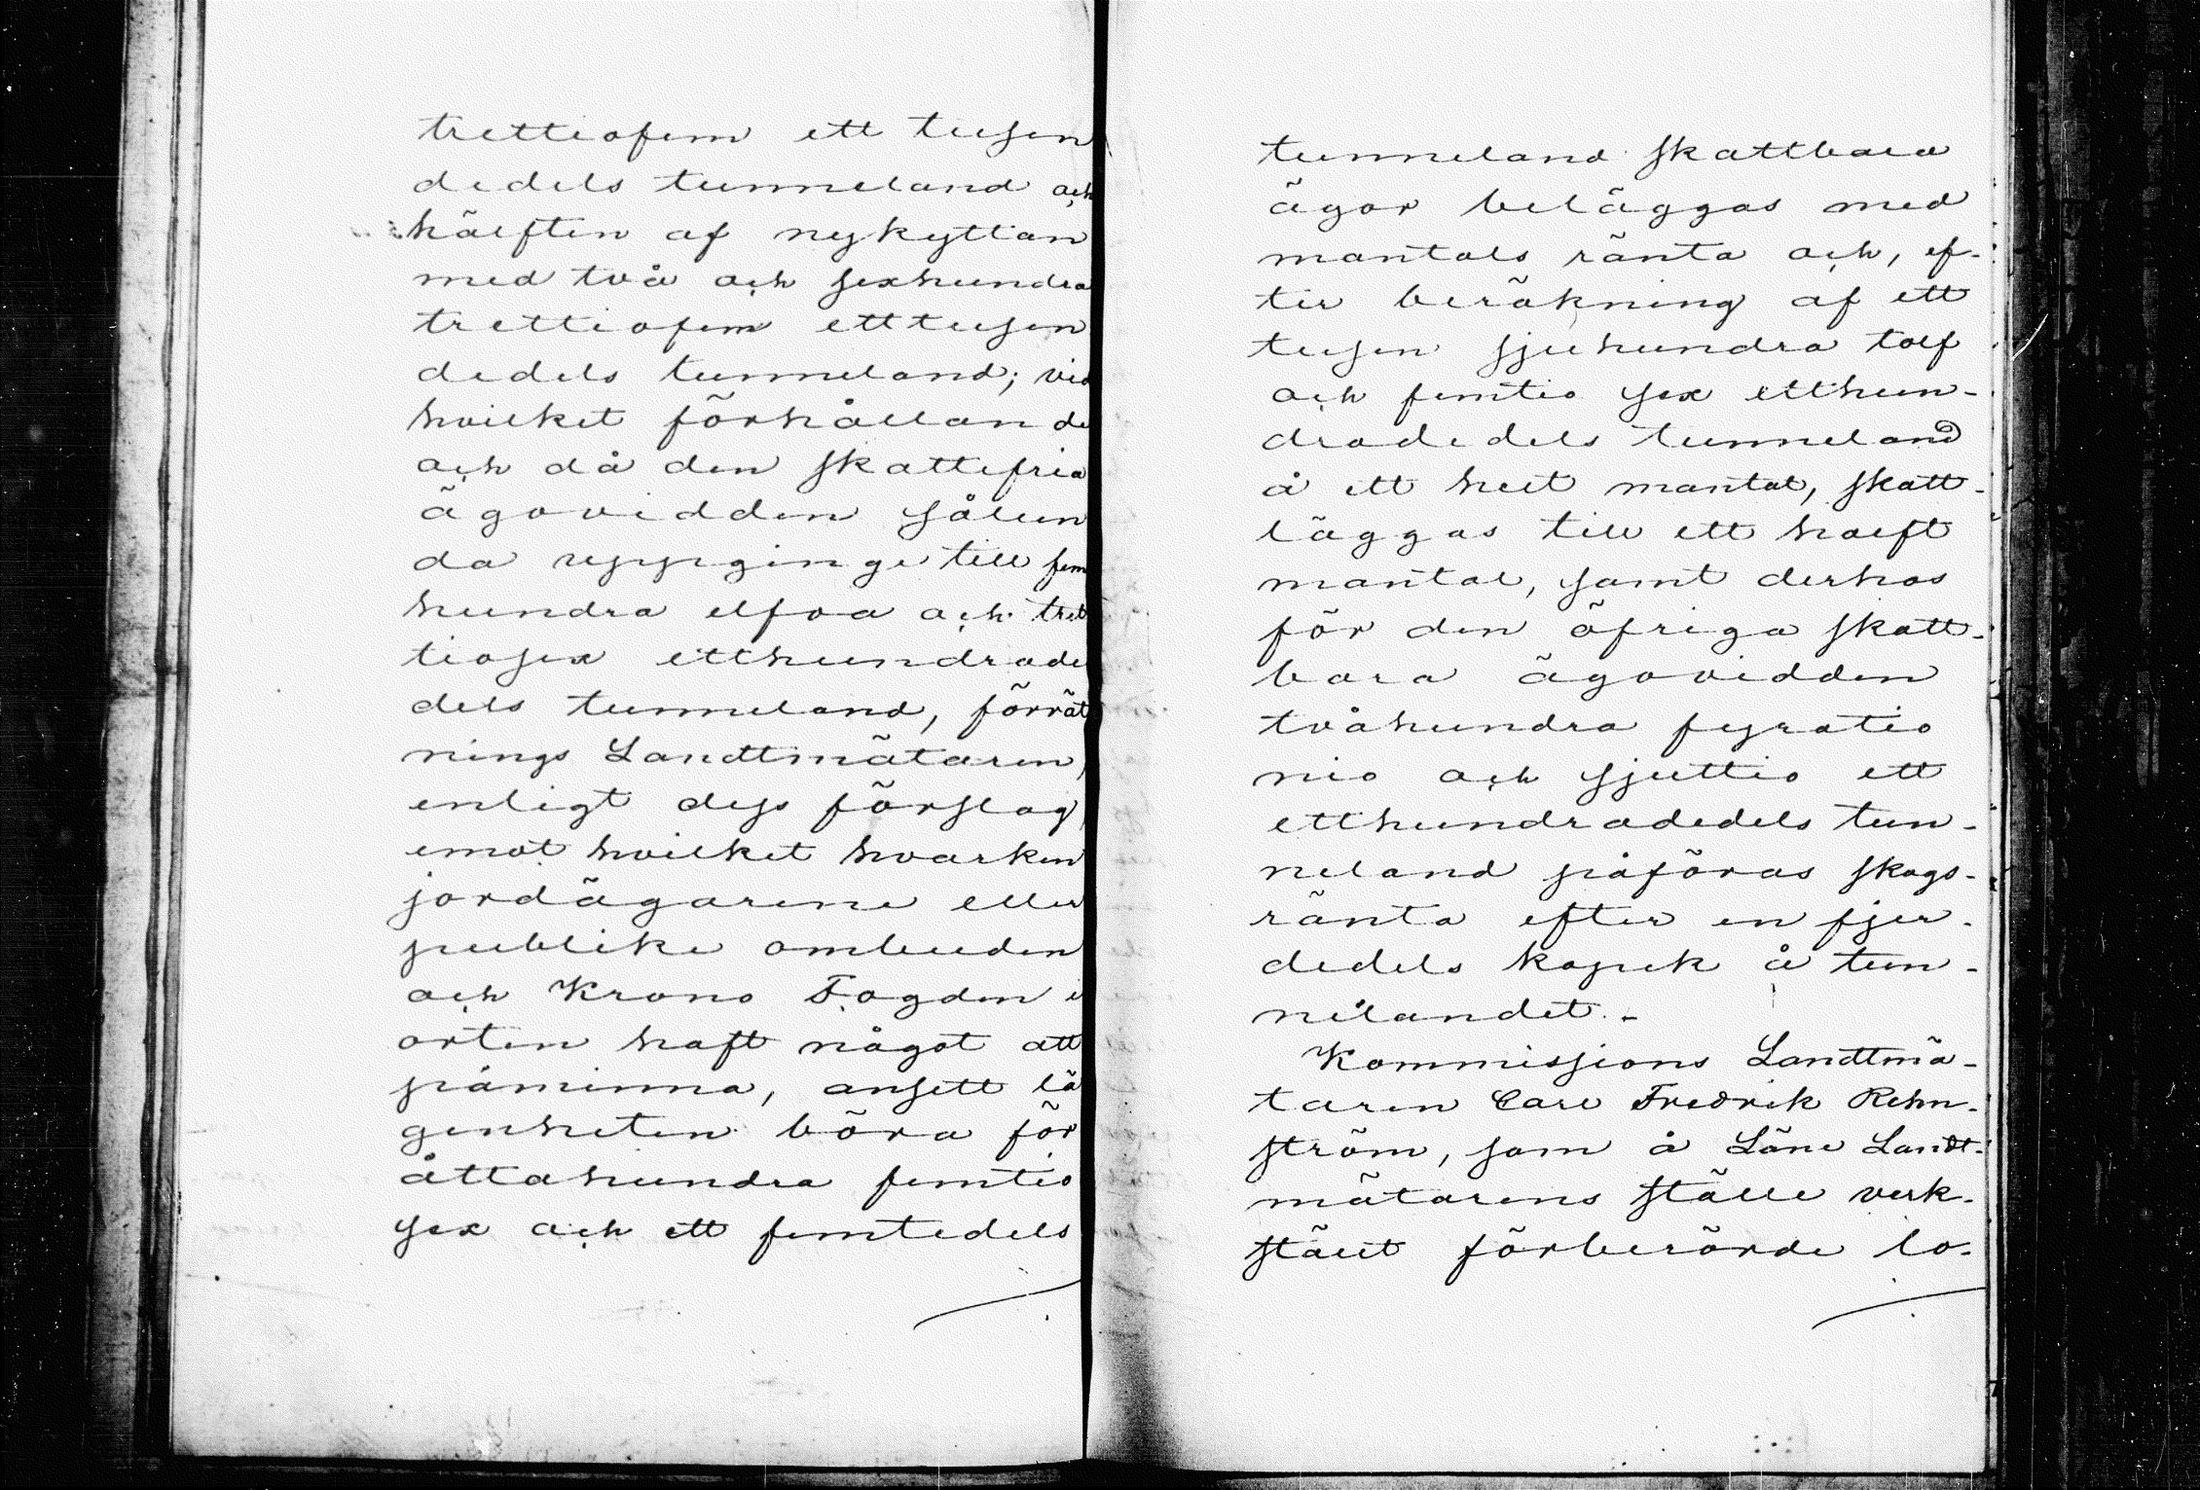 trettiofem ett tusen
dedels tunneland och
hälften af nykyttan
med två och sexhundra
trettiofem ett tusen
dedels tunneland; vid
hvilket förhållande
och då den skattefria
ägovidden sålun
da uppginge till fem
hundra elfva och tret
tiosex etthundrade
dels tunneland, förrät
nings Landtmätaren,
enligt dess förslag,
emot hvilket hvarken
jordägarene eller
publike ombuden
och Krono Fogden i
orten haft något att
påminna, ansett lä
genheten böra för
åttahundra femtio
sex och ett femtedels
tunneland skattbara
ägor beläggas med
mantals ränta och, ef-
ter beräkning af ett
tusen sjuhundra tolf
och femtio sex etthun-
dradedels tunneland
å ett helt mantal, skatt-
läggas till ett halft
mantal, samt derhos
för den öfriga skatt-
bara ägovidden
tvåhundra fyratio
nio och sjuttio ett
etthundradedels tun-
neland påföras skogs-
ränta efter en fjer-
dedels kopek å tun-
nelandet.-
Kommissions Landtmä-
taren Carl Fredrik Rehn-
ström, som å Läne Landt-
mätarens ställe verk-
stält förberörde lo-